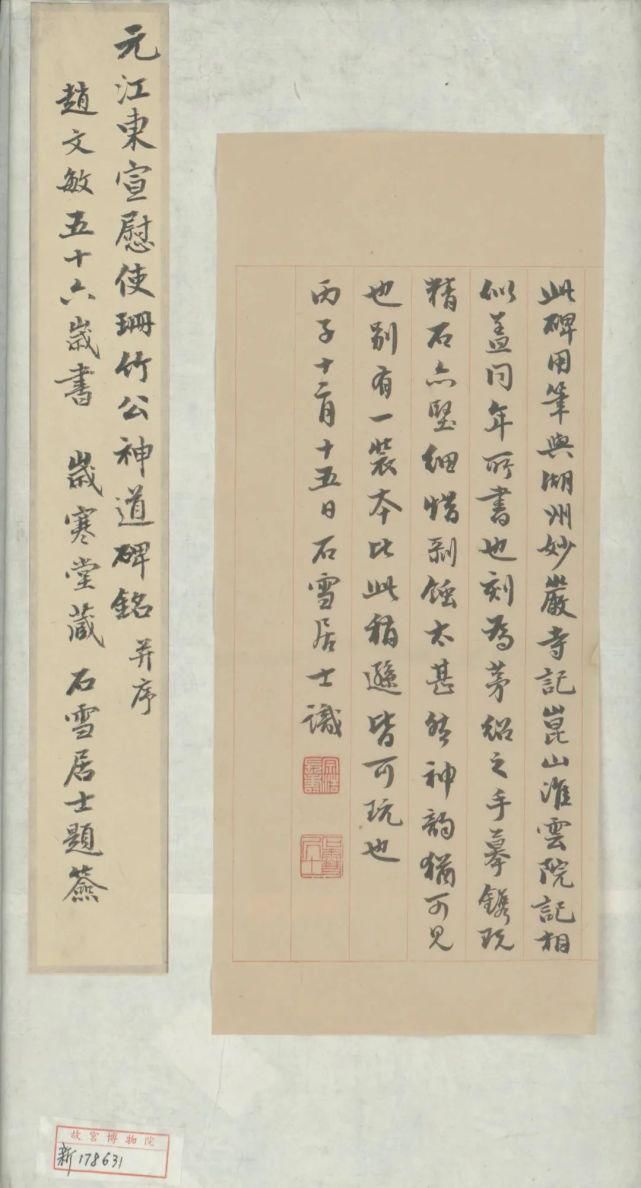 此碑用筆與湖州妙嚴寺記崑山淮雲院記相
似蓋同年所書也刻為茅紹之手摹鐫既
精石亦堅細惜剥蝕太甚然神韵猶可見
也别有一装本比此稍遜皆可玩也
丙子十二月十五日石雪居士識
元江東宣慰使珊竹公神道碑銘并序
趙文敏五十六歲書 歲寒堂藏 石雪居士題簽
故宮博物院
新178631